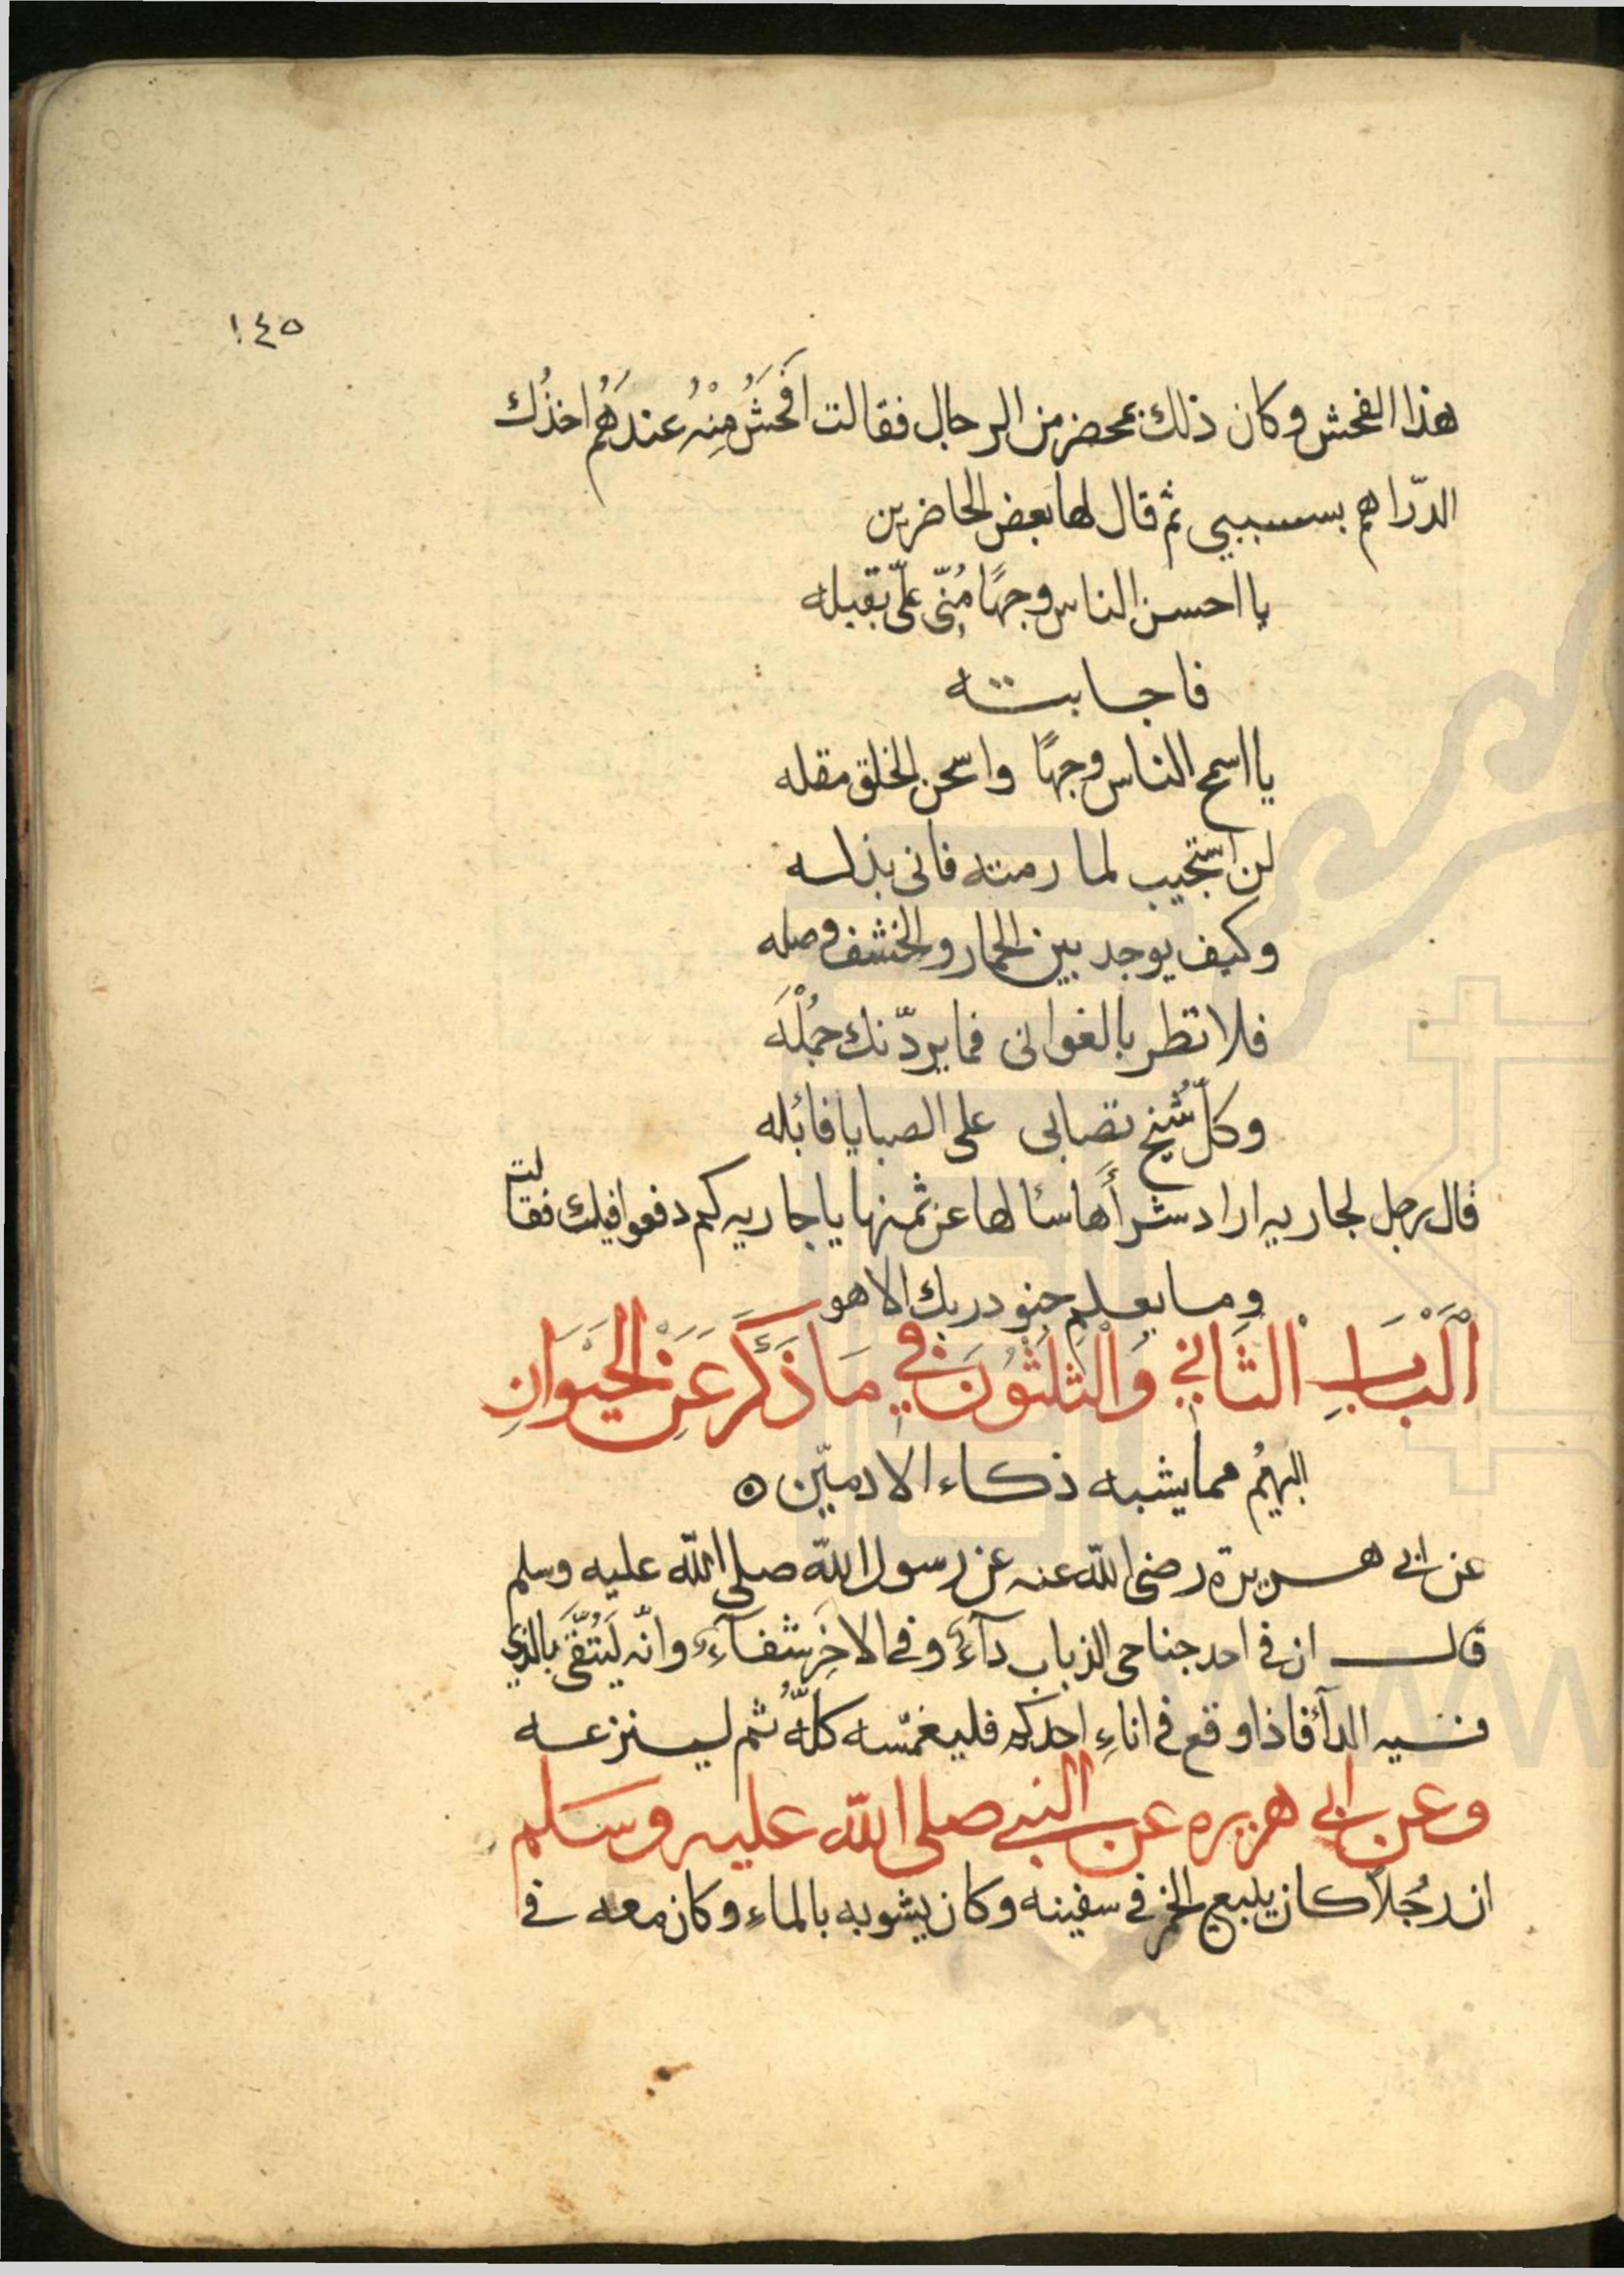 ١٤٥
هذا الفحش وكان ذلك بمحضر من الرجال فقالت اَفحَشُ مِنْهُ عندَهُم اخذُك
الدّراهم بسببي ثم قال لها بعض الحاضرين
يا احسن الناس وجهًا مُنِّي علىّ بقبله
فاجابته
يا اسمح الناس وجهًا واسخن الخلق مقله
لن استجيب لما رمته فانى بذله
وكيف يوجد بين الحمار والخشف وصله
فلا تطر بالغوانى فما يردّنك جمُلْهَ
وكلّ شيخ تصابى على الصبايا فائله
قال رجل لجاريه اراد شرأَها سئالها عن ثمنها يا جاريه كم دفعوا فيك فقالت
وما يعلم جنود ربك الا هو
اَلْبَابِ الثَاني وَالْثلثوُنَ في مَا ذَكَرَ عَنْ الحَيَوَانِ
البهيُم مما يشبه ذكاء الادميّن
عن ابى هريرة رضى الله عنه عن رسول الله صلى الله عليه وسلم
قال ان فى احد جناحى الذباب دآءً وفى الاخَرِ شفآءً وانّه لَيَتَّقَي بالذي
فيه الدآء فاذا وقع فى اناءِ احدكم فليغمّسه كلّهُ ثم لينزعه
وعن ابى هريره عن النبي صلى الله عليه وسَلم
ان رجُلاً كان يبيع الخمر فى سفينه وكان يشوبه بالماءِ وكان معه فى